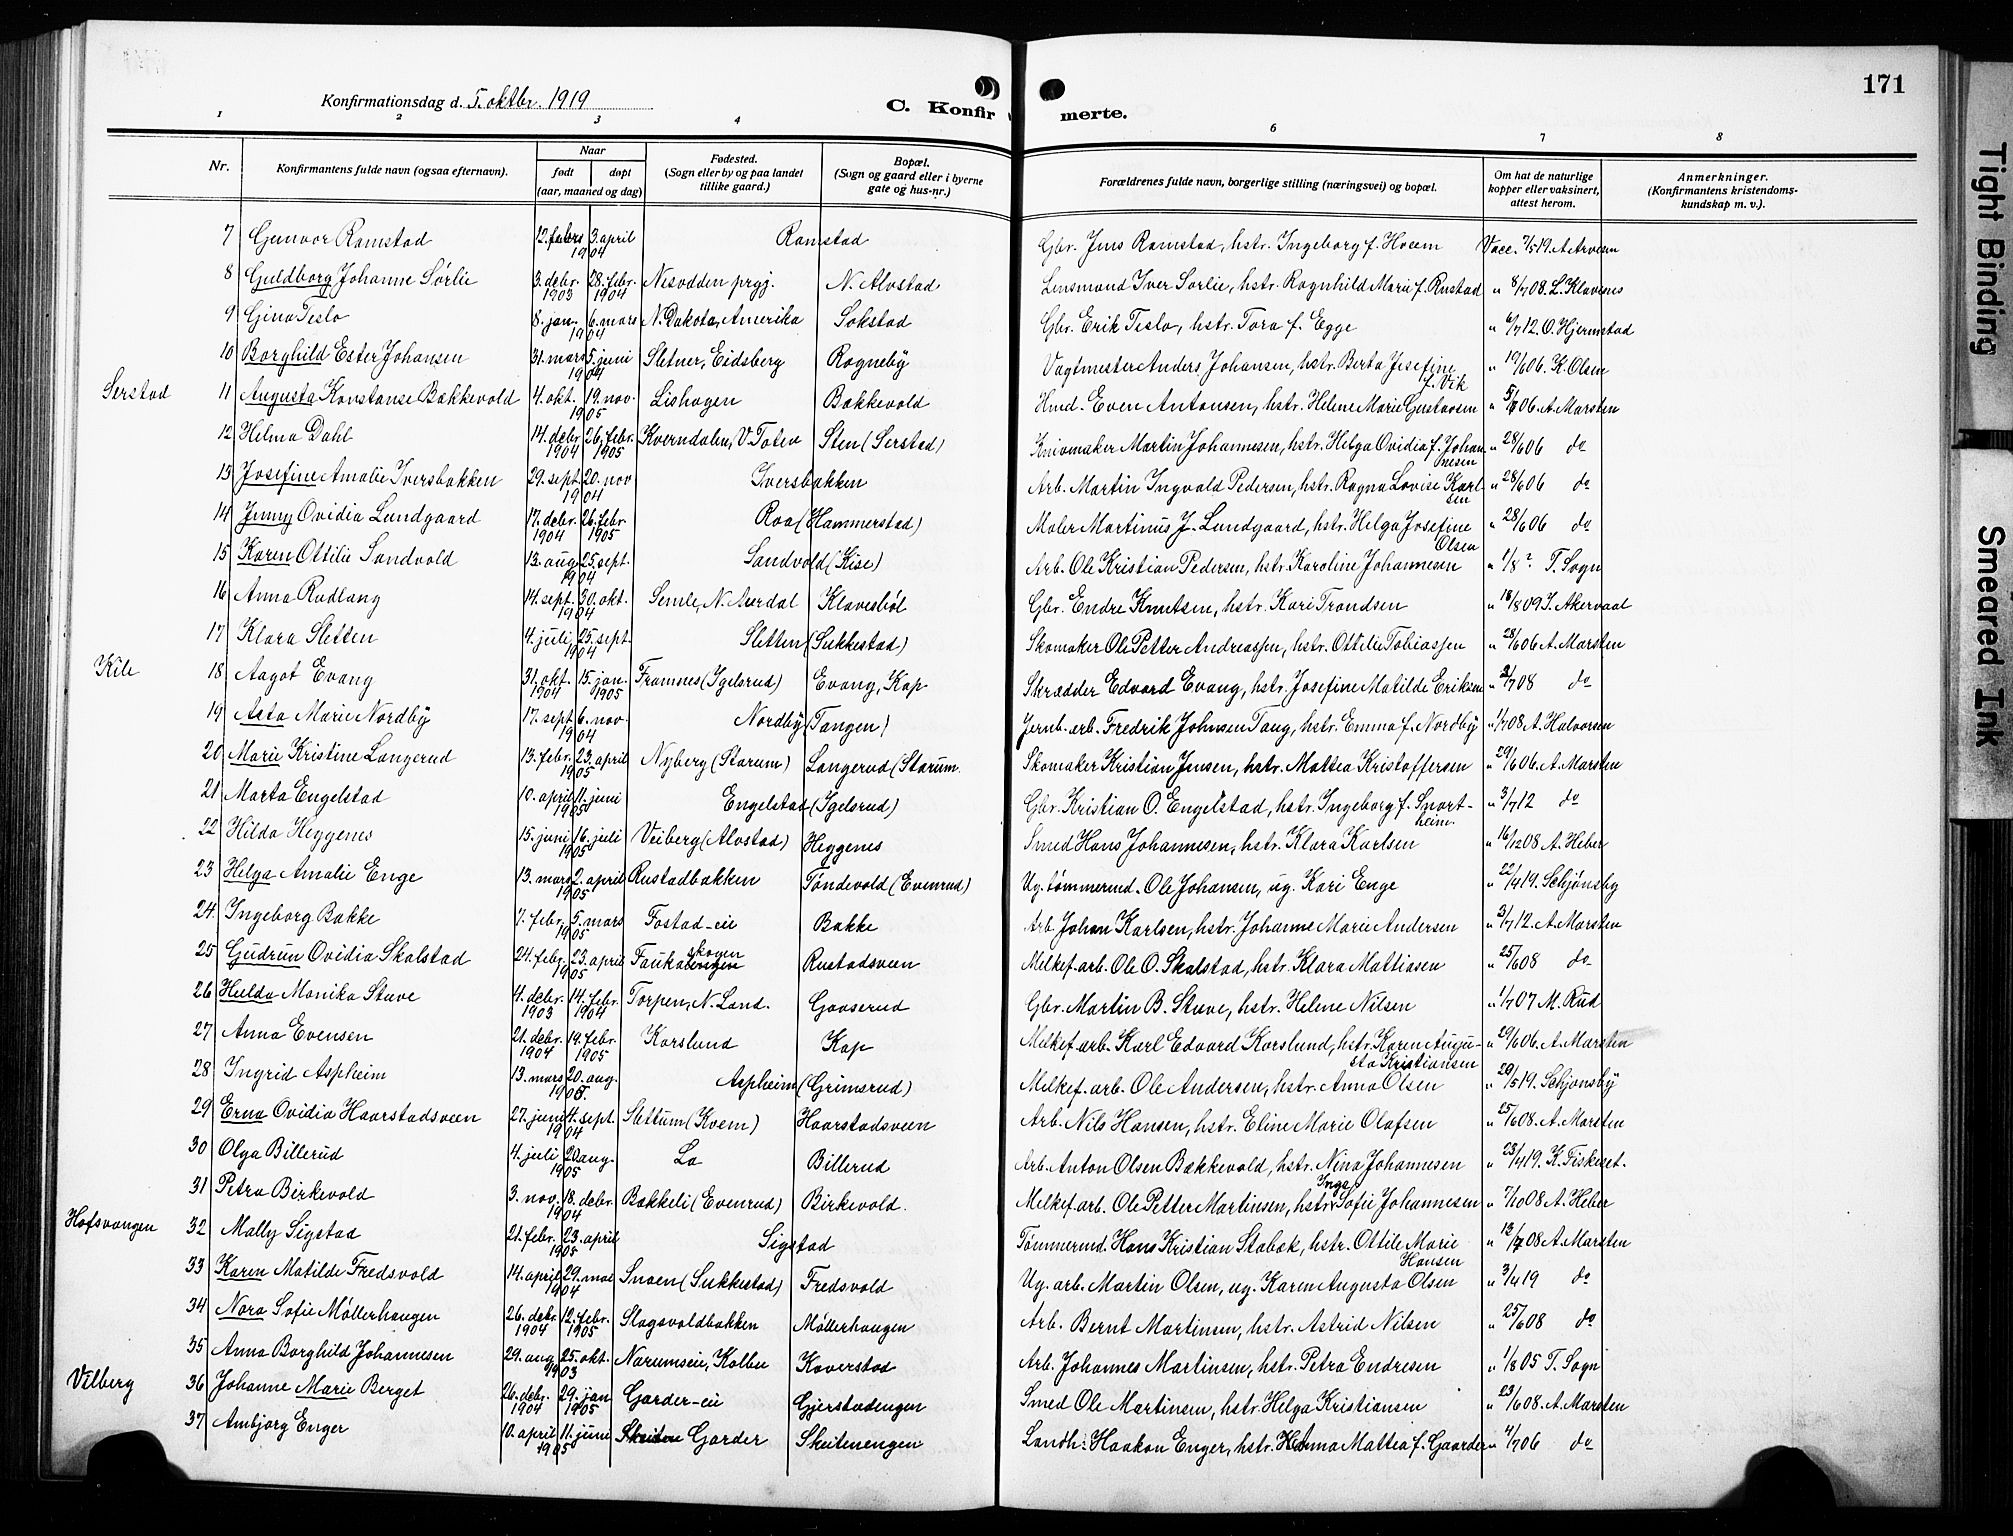 171
Konfirmationsdag d. 5. oktbr. 1919
C. Konfirmerte.
1 2 3 4 6 7 8
Nr. Konfirmantens fulde navn (ogsaa efternavn). Naar født døpt (aar, maaned og dag) Fødested. (Sogn eller by og paa landet tillike gaard.) Bopæl. (Sogn og gaard eller i byerne gate og hus-nr.) Forældrenes fulde navn, borgerlige stilling (næringsvei) og bopæl. Om hat de naturlige kopper eller vaksinert, attest herom. Anmerkninger. (Konfirmantens kristendoms-kundskap m. v.).
7 Gunvor Ramstad 12. febr. 3. april 1904 Ramstad Gbr. Jens Ramstad, hstr. Ingeborg f. Hoem Vacc. 7/5 19. A. Arvesen
8 Guldborg Johanne Sørlie 3. debr. 1903 28. febr. 1904 Nesodden prgj. N. Alvstad Lensmand Iver Sørlie, hstr. Ragnhild Marie f. Rustad " 8/7 08. L. Klavenes
9 Gina Teslo 8. jan. 6. mars 1904 N. Dakota, Amerika Sokstad Gbr. Erik Teslo, hstr. Tora f. Egge " 6/7 12. O. Hjermstad
10 Borghild Ester Johansen 31. mars 5. juni 1904 Sletner, Eidsberg Rogneby Vagtmester Anders Johansen, hstr. Berta Josefine f. Vik " 19/6 06. K. Olsen
Serstad 11 Augusta Konstanse Bakkevold 4. okt. 19. nov. 1905 Lishagen Bakkevold Hmd. Even Antonsen, hstr. Helene Marie Gustavsen " 5/7 06. A. Marsten
12 Helma Dahl 14. debr. 1904 26. febr. 1905 Kverndalen, V. Toten Sten (Serstad) Knivmaker Martin Johannesen, hstr. Helga Ovidia f. Johannesen " 28/6 06 do
13 Josefine Amalie Iversbakken 29. sept. 20. nov. 1904 Iversbakken Arb. Martin Ingvald Pedersen, hstr. Ragna Lovise Karlsen " 28/6 06 do
14 Jenny Ovidia Lundgaard 17. debr. 1904 26. febr. 1905 Roa (Hammerstad) Maler Martinus J. Lundgaard, hstr. Helga Josefine Olsen " 28/6 06 do
15 Karen Ottilie Sandvold 13. aug. 25. sept. 1904 Sandvold (Kise) Arb. Ole Kristian Pedersen, hstr. Karoline Johannesen " 1/8 ? T. Sogn
16 Anna Rudlang 14. sept. 30. okt. 1904 Semle, N. Aurdal Klavesbøl Gbr. Endre Knutsen, hstr. Kari Trondsen " 18/8 09 J. Akervaal
17 Klara Sletten 4. juli 25. sept. 1904 Sletten (Sukkestad) Skomaker Ole Petter Andreassen, hstr. Ottilie Tobiassen " 28/6 06 A. Marsten
Kile 18 Aagot Evang 31. okt. 1904 15. jan. 1905 Framnes (Igelsrud) Evang, Kap Skrædder Edvard Evang, hstr. Josefine Matilde Eriksen " 2/7 08 do
19 Asta Marie Nordby 17. sept. 6. nov. 1904 Nordby (Tangen) Jernb. arb. Fredrik Johnsen Tang, hstr. Emma f. Nordby " 1/7 08 A. Halvorsen
20 Marie Kristine Langerud 13. febr. 23. april 1905 Nyberg (Starum) Langerud (Starum. Skomaker Kristian Jensen, hstr. Mattea Kristoffersen " 29/6 06. A. Marsten
21 Marta Engelstad 10. april 11. juni 1905 Engelstad (Igelsrud) Gbr. Kristian O. Engelstad, hstr. Ingeborg f. Snortheim. " 3/7 12 do
22 Hilda Heggenes 15. juni 16. juli 1905 Veiberg (Alvstad) Heggenes Smed Hans Johannesen, hstr. Klara Karlsen " 16/12 08 A. Heber
23 Helga Amalie Enge 13. mars 2. april 1905 Rustadbakken Tøndevold (Evenrud) Ug. tømmermd. Ole Johansen, ug. Kari Enge " 22/4 19. Schjønsby
24 Ingeborg Bakke 7. febr. 5. mars 1905 Fostad-eie Bakke Arb. Johan Karlsen, hstr. Johanne Marie Andersen " 3/7 12. A. Marsten
25 Gudrun Ovidia Skalstad 24. febr. 23. april 1905 Faukalskogen Rustadsveen Melkef. arb. Ole O. Skalstad, hstr. Klara Mattiasen " 25/6 08 do
26 Hulda Monika Stuve 4. debr. 1903 14. febr. 1904 Torpen, N. Land. Gaaserud Gbr. Martin B. Stuve, hstr. Helene Nilsen " 1/7 07 M. Rud
27 Anna Evensen 21. debr. 1904 19. febr. 1905 Korslund Kap Melkef. arb. Karl Edvard Korslund, hstr. Karen Augusta Kristiansen " 29/6 06. A. Marsten
28 Ingrid Aspheim 13. mars 20. aug. 1905. Aspheim (Grimsrud) Melkef. arb. Ole Andersen, hstr. Anna Olsen " 20/5 19. Schjønsby
29 Erna Ovidia Haarstadsveen 27. juni 4. sept. 1904 Slettum (Kvem) Haarstadsveen Arb. Nils Hansen, hstr. Eline Marie Olafsen " 25/6 08. A. Marsten
30 Olga Billerud 4. juli 20 aug. 1905 Lo Billerud Arb. Anton Olsen Bakkevold, hstr. Nina Johannesen " 23/4 19. K. Fiskeset.
31 Petra Birkevold 3. nov. 18. debr. 1904 Bakkeli (Evenrud) Birkevold. Melkef. arb. Ole Petter Martinsen, hstr. Inga Sofie Johannesen " 7/10 08 A. Heber
Hofsvangen 32 Mally Sigstad 21. febr. 23. april 1905 Sigstad Tømmermd. Hans Kristian Stabæk, hstr. Ottilie Marie Hansen " 13/7 08 A. Marsten
33 Karen Matilde Fredsvold 14. april 29. mai 1904 Snoen (Sukkestad) Fredsvold Ug. arb. Martin Olsen, ug. Karen Augusta Olsen " 3/4 19 do
34 Nora Sofie Møllerhaugen 26. debr. 1904 12. febr. 1905 Slagsvoldbakken Møllerhaugen Arb. Bernt Martinsen, hstr. Astrid Nilsen " 25/6 08 do
35 Anna Borghild Johannesen 29. aug. 25. okt. 1903 Narumseie, Kolbu Kaverstad Arb. Johannes Martinsen, hstr. Petra Endresen " 1/8 05 T. Sogn
Vilberg 36 Johanne Marie Berget 26. debr. 1904 29. jan 1905 Garder-eie Gjerstadengen Smed Ole Martinsen, hstr. Helga Kristiansen " 23/6 08. A. Marsten
37 Ambjørg Enger 10. april 11. juni 1905 Garder Skeitenengen Landh. Haakon Enger, hstr. Anna Mattea f. Gaarder " 4/7 06 do
Tight Binding
Smeared Ink